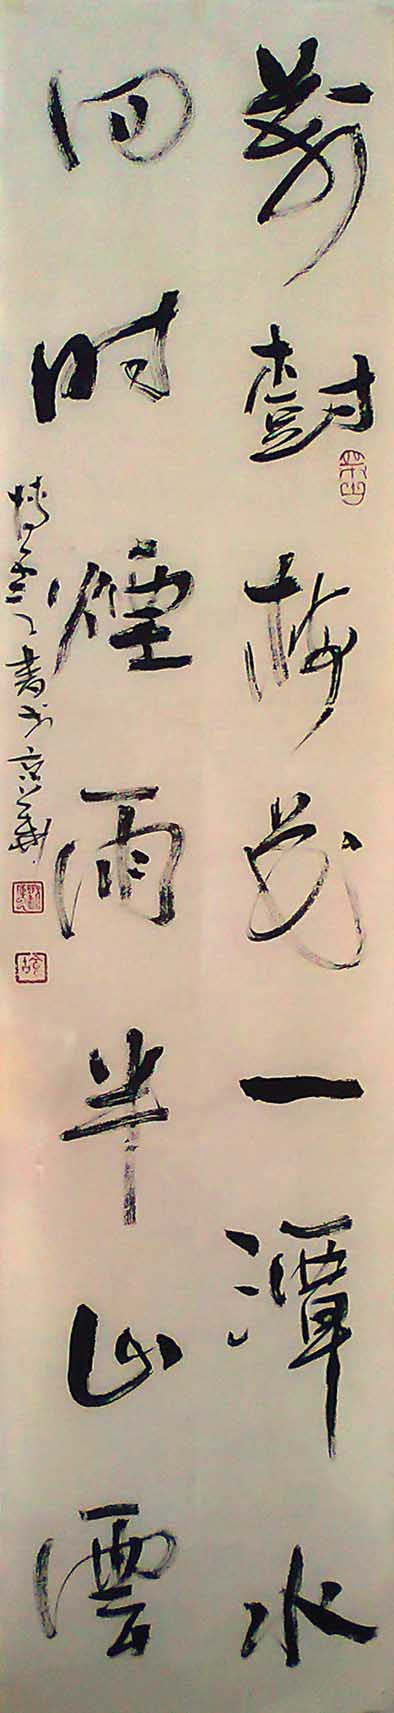 萬樹梅花一潭水
四時煙雨半山雲
書於京華